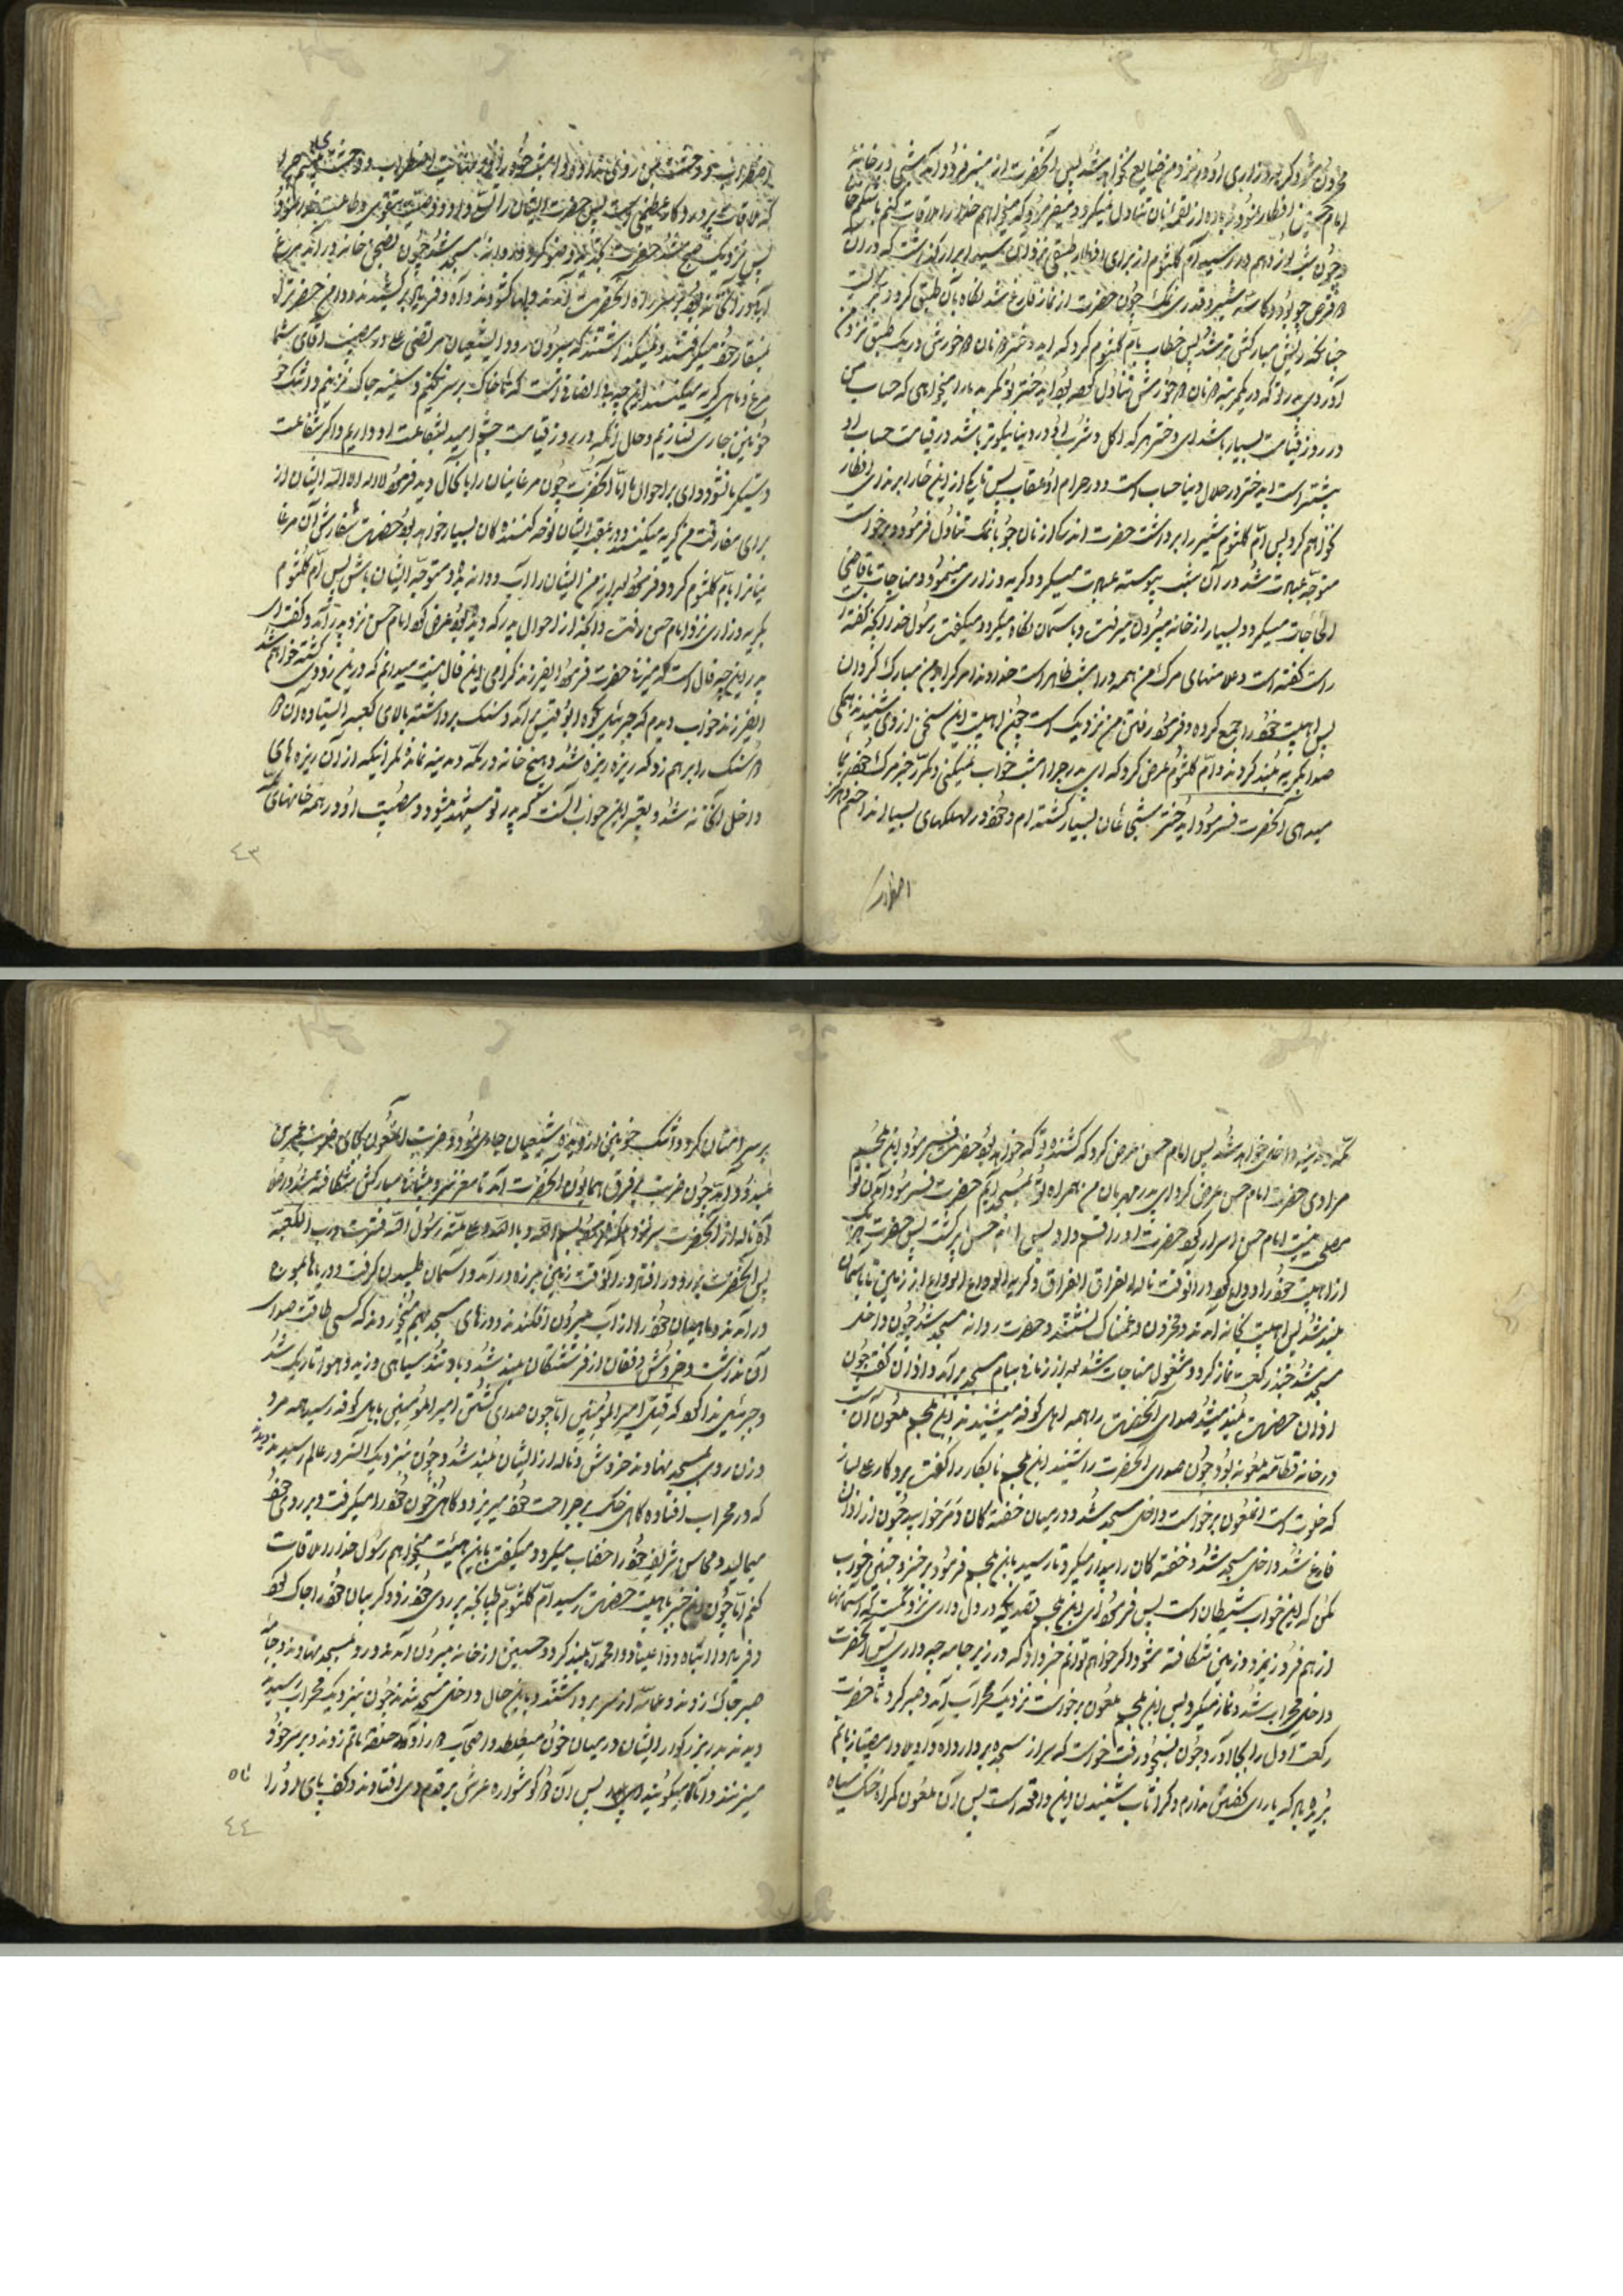 محزون شد و گریه و زاری او در نزد من ضایع نخواهد شد پس آنحضرت از منبر فرود آمد شبی در خانهٔ
امام حسین افطار نمود و زیاده از لقمهٔ نان تناول نمیکرد و میفرمود که میخواهم خدا را ملاقات کنم با شکم خالی
و چون شب نوزدهم در رسید ام کلثوم از برای افطار طبقی نزد آن سید ابرار گذاشت که در آن
دو قرص جو بود و کاسهٔ شیر و قدری نمک چون حضرت از نماز فارغ شد نگاه بآن طبق کرد و بگریست
چنانکه ریش مبارکش تر شد پس خطاب بام کلثوم کرد که ای دختر دو نان خورش در یک طبق نزد من
آورده‌ای
در روز قیامت بسیار باشد ای دختر هر که اکل و شرب او در دنیا نیکوتر باشد در قیامت حساب او
بیشتر است ای دختر در حلال دنیا حساب است و در حرام او عقاب پس تا یکی از این دو را بر نداری افطار
نخواهم کرد پس ام کلثوم شیر را برداشت حضرت اندکی از نان جو با نمک تناول فرمود و برخواست
متوجه عبادت شد در آن شب پیوسته عبادت میکرد و گریه و زاری مینمود و مناجات با قاضی
الحاجات میکرد و بسیار از خانه بیرون میرفت و باسمان نگاه میکرد و میگفت رسول خدا آنچه گفته
راست گفته است و علامتهای مرگ من همه در این شب ظاهر است خداوندا مرگ را بر من مبارک گردان
پس اهلبیت خود را جمع کرده و فرمود رفتن من نزدیک است چون اهلبیت این سخن از وی شنیدند همگی
صدا بگریه بلند کردند و ام کلثوم عرض کرد که ای پدر چرا امشب خواب نمیکنی و مکرر خبر مرگ خود بما
میدهی آنحضرت فرمود ای دختر شجاعان بسیار کشته‌ام و خود در مهلکهای بسیار انداختم و هرگز
اضطراب
اضطراب و وحشت من روی نداد و در امشب خود را در نهایت اضطراب و وحشت میبینم چرا
که ملاقات پروردگار عظیم است پس حضرت ایشان را تسلی داد و وصیت بتقوی و طاعت خدا نمود
پس نزدیک صبح شد حضرت وضو کرد و روانه مسجد شد چون بصحن خانه در آمد مرغ
بمنقار خود میگرفتند و نمیگذاشتند که بیرون رود ای شیعیان مرتضی علی در مصیبت آقای شما
مرغ و ماهی گریه میکنند این چه بی انصافی است که ما خاک بر سر نکنیم و سینه چاک نزنیم و اشک
خونین جاری نسازیم و حال آنکه در روز قیامت چشم امید بشفاعت او داریم و اگر شفاعت
دستگیر ما نشود وای بر احوال ما اما آنحضرت چون مرغابیان را باین حال دید فرمود لا اله الا الله ایشان از
برای مفارقت من گریه میکنند و در عقب ایشان نوحه کننده‌گان بسیار خواهند بود حضرت سفارش آن مرغا
بیان را بام کلثوم کرد و فرمود بعد از من ایشان را آب و دانه بده و متوجه ایشان باش پس ام کلثوم
بگریه و زاری نزد امام حسن رفت و آنچه از احوال پدر که دیده بود عرض کرد امام حسن نزد پدر آمد و گفت ای
پدر این چه فال است که میزنی حضرت فرمود ای فرزند گرامی این فال نیست میدانم که در این زودی کشته خواهم شد
ای فرزند خواب دیدم که جبرئیل بکوه ابوقبیس برآمد و دو سنگ برداشته بالای کعبه ایستاده آن دو
سنگ را بر هم زد که ریزه ریزه شد و هیچ خانه در مکه و مدینه نماند مگر اینکه از آن ریزه‌های
داخل آنخانه شد و تعبیر این خواب آنست که پدر تو شهید میشود و مصیبت او در همه خانهای
٤٣
مکه و مدینه داخل خواهد شد پس امام حسن عرض کرد که کشنده تو که خواهد بود حضرت فرمود ابن ملجم
مرادی حضرت امام حسن عرض کرد ای پدر مهربان من همراه تو بمسجد آیم حضرت فرمود آمدن تو
مصلحت نیست امام حسن اصرار کرد حضرت او را قسم داد پس امام حسن برگشت پس حضرت
از اهلبیت خود را وداع کرد در آنوقت ناله الفراق الفراق و گریه الوداع الوداع از زمین تا باسمان
بلند شد پس اهلبیت بخانه آمدند و محزون و غمناک نشستند و حضرت روانه مسجد شد چون داخل
مسجد شد چند رکعت نماز کرد و مشغول مناجات شد بعد از زمانی ببام مسجد برآمد و اذان گفت چون
اذان حضرت بلند میشد صدای آنحضرت را همه اهل کوفه میشنیدند ابن ملجم ملعون آن شب
در خانه قطامه ملعونه بود چون صدای آنحضرت را شنید ابن ملجم نابکار را گفت برو کار علی بساز
که خلوت است آنملعون برخواست داخل مسجد شد و در میان خفته‌گان دمر خوابید چون از اذان
فارغ شد داخل مسجد شد و خفته‌گان را بیدار میکرد تا رسید بابن ملجم فرمود برخیز و چنین خواب
مکن که این خواب شیطان است پس فرمود ای ابن ملجم قصدیکه در دل داری نزدیکست که آسمانها
از هم فرو ریزد و زمین شکافته شود و اگر خواهم توانم خبر داد که در زیر جامه چه داری پس آنحضرت
داخل محراب شد و نماز میکرد پس ابن ملجم ملعون برخواست نزدیک محراب آمد و صبر کرد تا حضرت
رکعت اول را بجا آورد و چون بسجود رفت خواست که سر از سجده بردارد
بریده باد که یارای گفتنش ندارم و کرا تاب شنیدن این واقعه است پس آن ملعون گمراه خاک سیاه
بر سر امتان کرد و اشک خونین از دیدهٔ شیعیان جاری نمود و ضربت آنملعون بجای ضربت عمرو بن
عبدود آمد چون ضربت بر فرق همایون آنحضرت آمد تا مغز سر و پیشانی مبارکش شکافته شد در آنوقت
آه و ناله از آنحضرت سر نزد بلکه فرمود بسم الله و بالله و علی ملة رسول الله فزت و رب الکعبه
پس آنحضرت بر رو در افتاد در آنوقت زمین بلرزه در آمد و آسمان طپیدن گرفت و دریاها بموج
در آمدند و ماهیان خود را از آب بیرون افکندند و درهای مسجد بهم میخوردند که کسی طاقت صدای
آن نداشت و خروش و فغان از فرشتگان بلند شد و باد تند سیاهی وزید و هوا تاریک شد
و جبرئیل ندا کرد که قتل امیر المؤمنین اما چون صدای کشتن امیر المؤمنین باهل کوفه رسید همه مرد
و زن روی بمسجد نهادند خروش و ناله از ایشان بلند شد و چون بنزدیک آنسرور عالم رسیدند دیدند
که در محراب افتاده گاهی خاک بر جراحت خود میریزد و گاهی خون خود را میگرفت و بر روی خود
میمالید و محاسن شریف خود را خضاب میکرد و میگفت باین هیئت میخواهم رسول خدا را ملاقات
کنم اما چون این خبر باهلبیت حضرت رسید ام کلثوم طپانچه بر روی خود زد و گریبان خود را چاک کرد
و فریاد وا ابتاه و وا علیا و وا محمداه بلند کرد و حسنین از خانه بیرون آمدند و رو بمسجد نهادند و جامهٔ
صبر چاک زدند و عمامه از سر برداشتند و باین حال داخل مسجد شدند چون بنزدیک محراب رسیدند
دیدند پدر بزرگوار ایشان در میان خون میغلطد و اصحاب در اطراف حلقهٔ ماتم زدند و بر سر خود
میزنند و اماما میگویند پس آن دو گوشواره عرش بر قدم وی افتادند و کف پای او را
٤٤